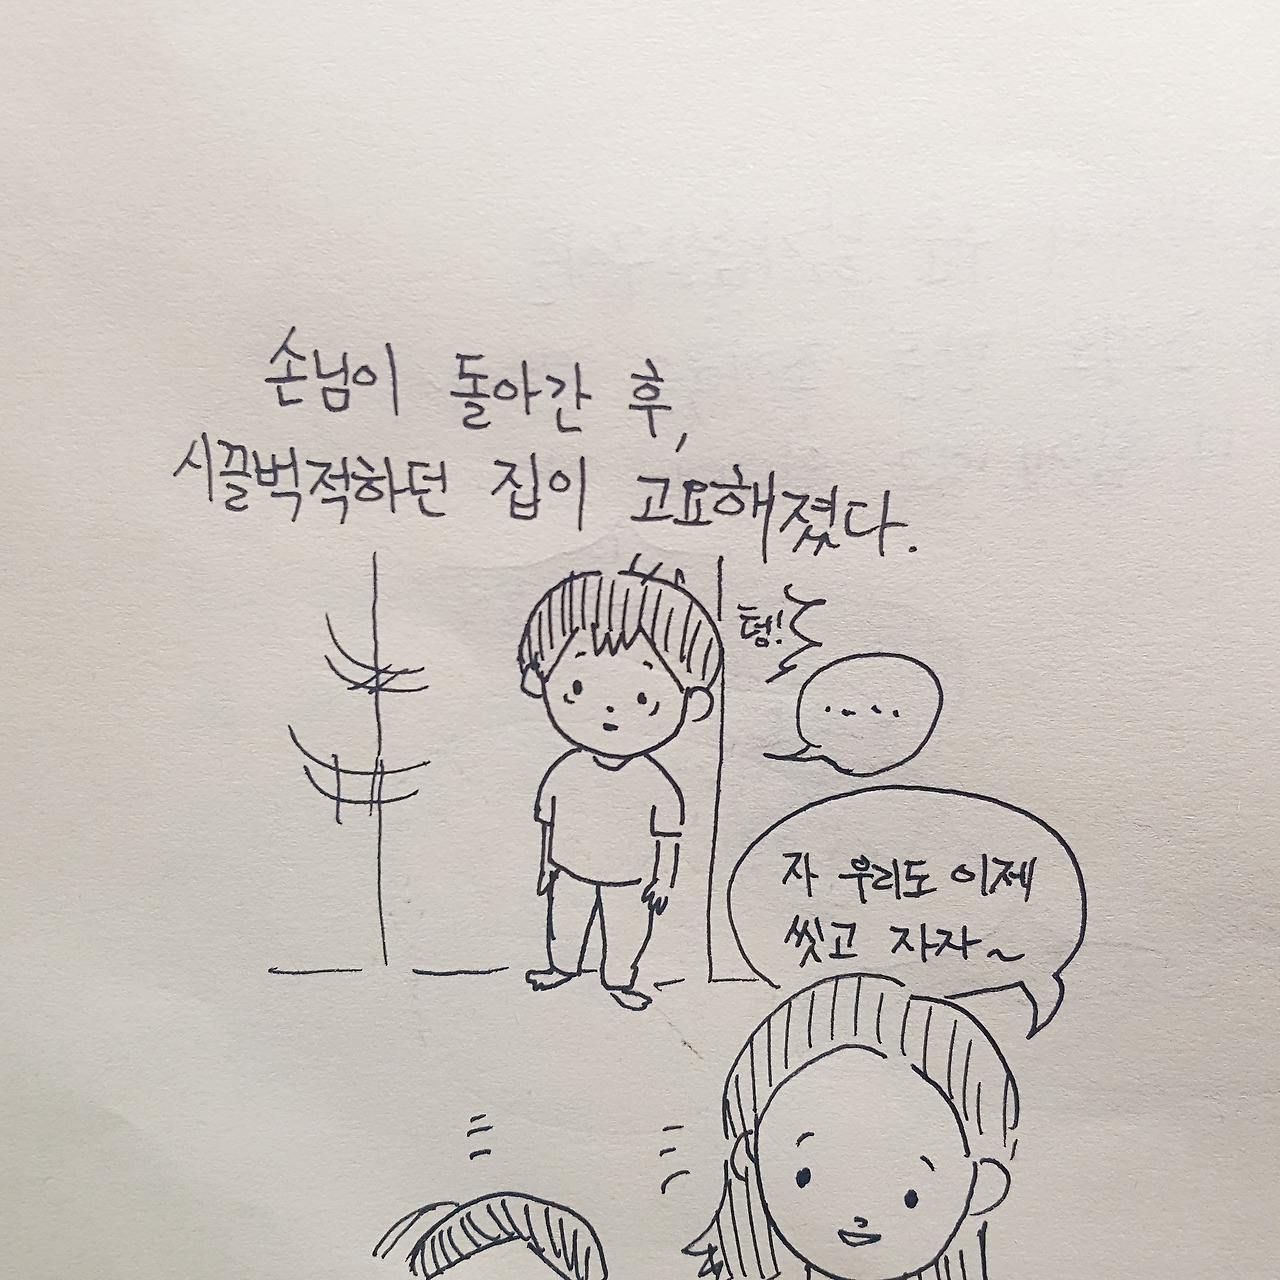 손님이 돌아간 후,
시끌벅적하던 집이 고요해졌다.
텅!
....
자 우리도 이제
씻고 자자~